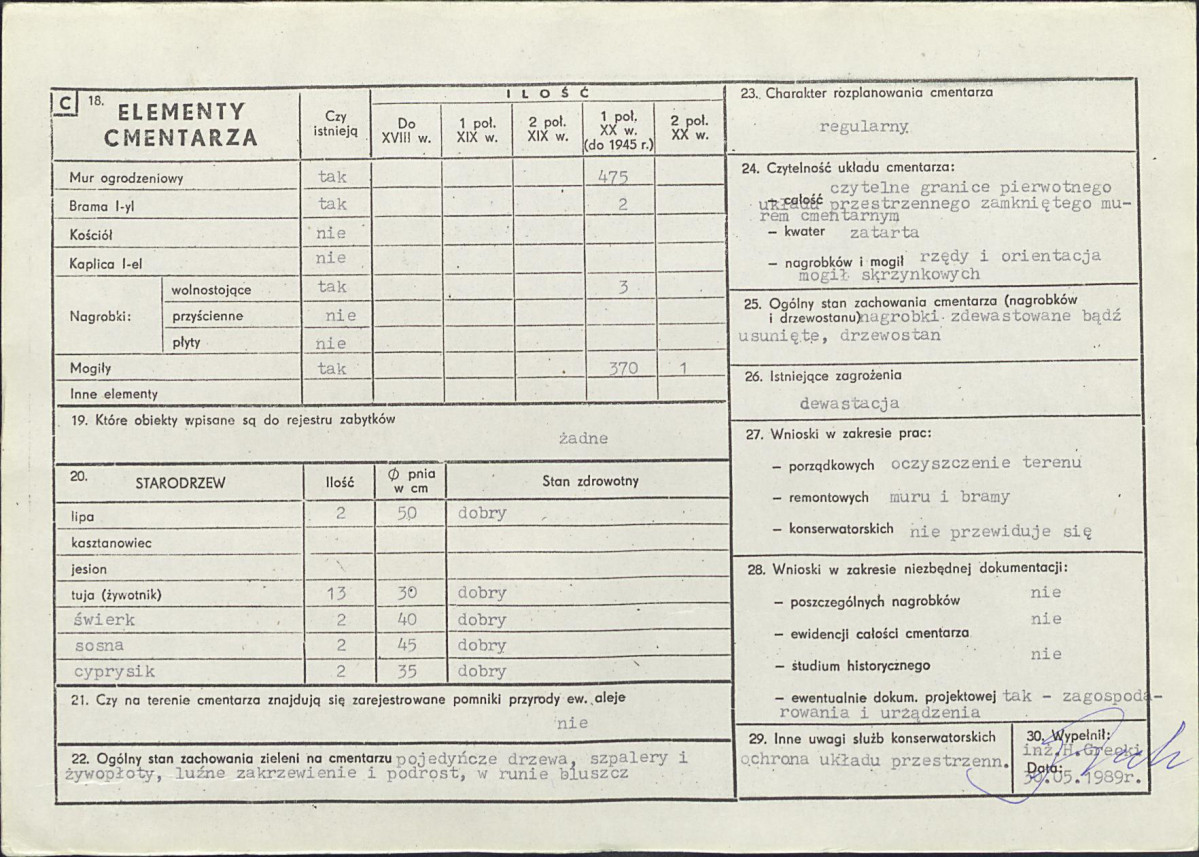 C 18. ELEMENTY CMENTARZA
Czy istnieją
ILOŚĆ
Do XVIII w.
1 poł. XIX w.
2 poł. XIX w.
1 poł. XX w. (do 1945 r.)
2 poł. XX w.
Mur ogrodzeniowy tak 475
Brama I-yl tak 2
Kościół nie
Kaplica I-el nie
Nagrobki:
wolnostojące tak 3
przyścienne nie
płyty nie
Mogiły tak 370 1
Inne elementy
19. Które obiekty wpisane są do rejestru zabytków
żadne
20. STARODRZEW Ilość Ø pnia w cm Stan zdrowotny
lipa 2 50 dobry
kasztanowiec
jesion
tuja (żywotnik) 13 30 dobry
świerk 2 40 dobry
sosna 2 45 dobry
cyprysik 2 35 dobry
21. Czy na terenie cmentarza znajdują się zarejestrowane pomniki przyrody ew. aleje
nie
22. Ogólny stan zachowania zieleni na cmentarzu pojedyńcze drzewa, szpalery i
żywopłoty, luźne zakrzewienie i podrost, w runie bluszcz
23. Charakter rozplanowania cmentarza
regularny
24. Czytelność układu cmentarza:
– całość czytelne granice pierwotnego
układu przestrzennego zamkniętego mu-
rem cmentarnym
– kwater zatarta
– nagrobków i mogił rzędy i orientacja
mogił skrzynkowych
25. Ogólny stan zachowania cmentarza (nagrobków
i drzewostanu) nagrobki zdewastowane bądź
usunięte, drzewostan
26. Istniejące zagrożenia
dewastacja
27. Wnioski w zakresie prac:
– porządkowych oczyszczenie terenu
– remontowych muru i bramy
– konserwatorskich nie przewiduje się
28. Wnioski w zakresie niezbędnej dokumentacji:
– poszczególnych nagrobków nie
– ewidencji całości cmentarza nie
– studium historycznego nie
– ewentualnie dokum. projektowej tak – zagospoda-
rowania i urządzenia
29. Inne uwagi służb konserwatorskich
ochrona układu przestrzenn.
30. Wypełnił:
inż.H.Grecki
Data:
30.05.1989r.